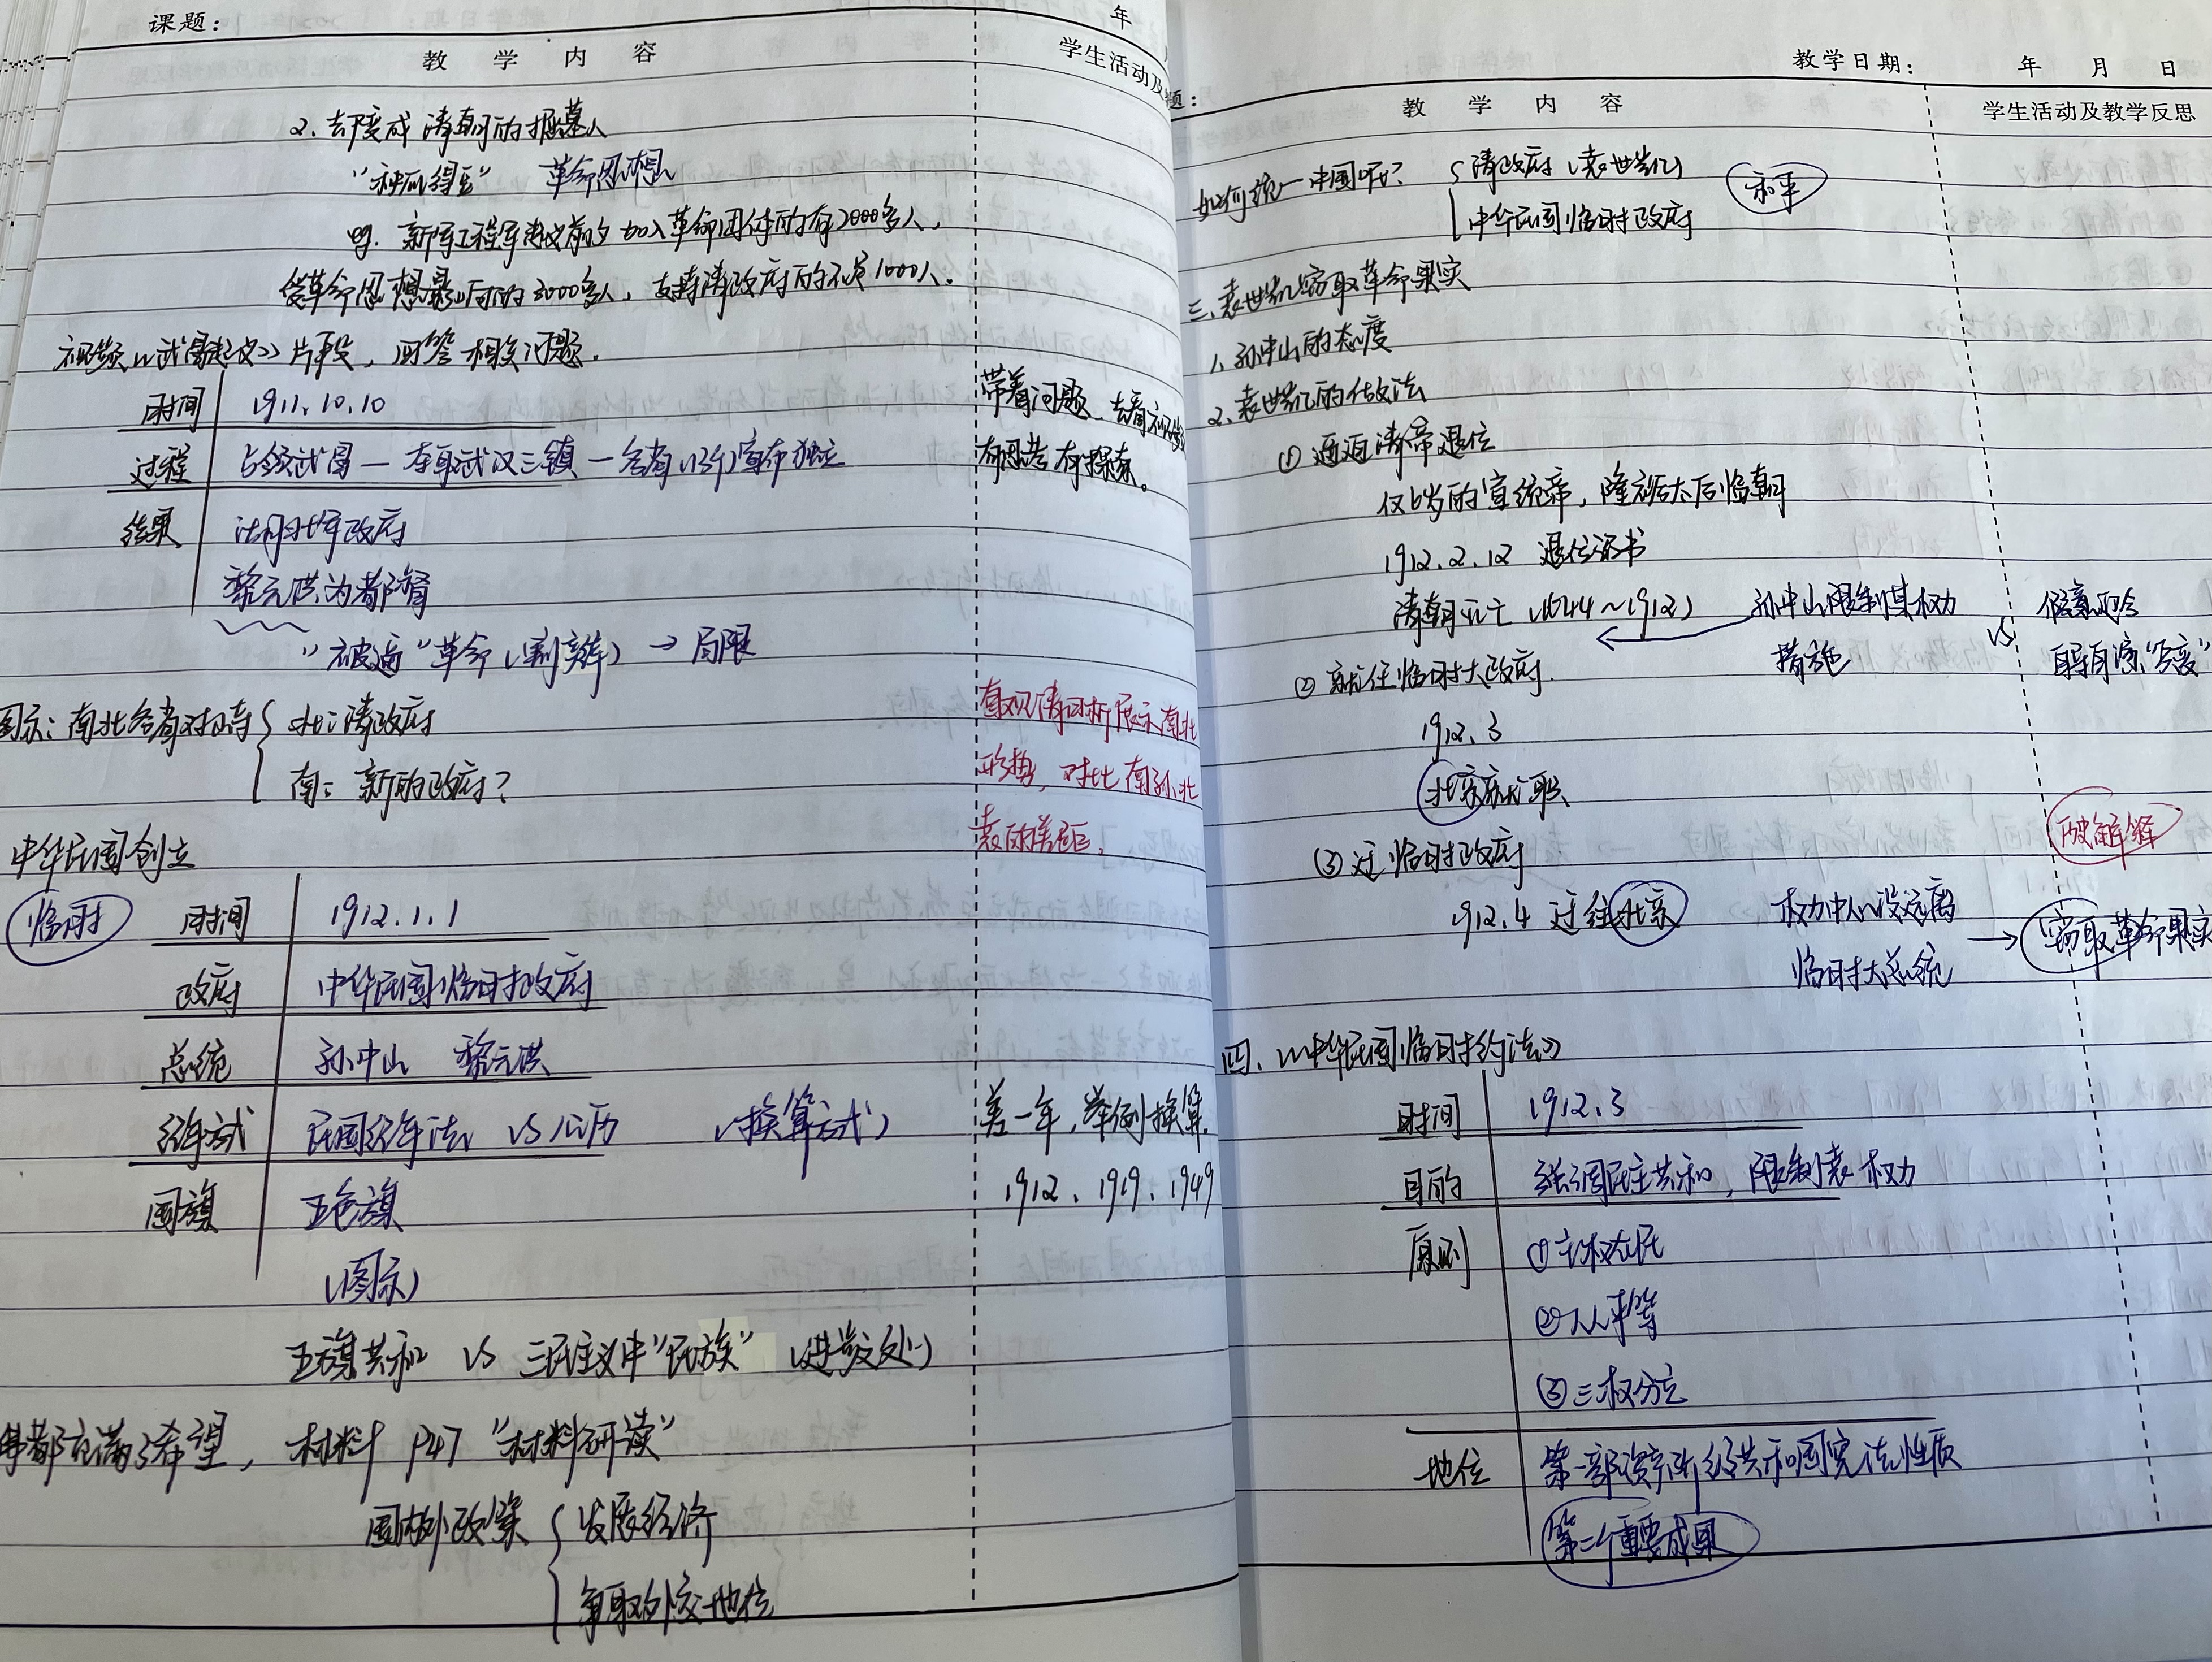 课题：
年
教 学 内 容
学生活动及
2、去隆成清朝的掘墓人
"种瓜得豆" 革命思想
eg. 新军工程军起义前夕加入革命团体的有2000多人，
受革命思想影响的3000多人，支持清政府的不足1000人。
视频《武昌起义》片段，回答相关问题.
时间 1911.10.10
过程 占领武昌—夺取武汉三镇—各省(13个)宣布独立
结果 湖北军政府
黎元洪为都督
"被逼"革命(剪辫) → 局限
带着问题、去看视频
有思考有探索。
图示：南北各省对峙 北：清政府
南：新的政府？
直观清晰展示南北
形势，对比南孙北
袁的差距。
中华民国创立
临时
时间 1912.1.1
政府 中华民国临时政府
总统 孙中山 黎元洪
纪年方式 民国纪年法 VS 公历 (换算方式)
国旗 五色旗
(图示)
差一年，举例换算.
1912、1919、1949
五旗共和 VS 三民主义中"民族" (进步处)
都充满了希望，材料 P47 "材料研读"
国内外政策 发展经济
争取外交地位
题：
教学日期： 年 月 日
教 学 内 容
学生活动及教学反思
如何统一中国呢？ 清政府(袁世凯)
中华民国临时政府
和平
三、袁世凯窃取革命果实
1、孙中山的态度
2、袁世凯的做法
① 逼迫清帝退位
仅6岁的宣统帝，隆裕太后临朝
1912.2.12 退位诏书
清朝灭亡(1644～1912)
孙中山限制其权力
措施
VS
假意迎合
自导自演"兵变"
② 就任临时大政府.
1912.3
北京就职
③ 迁临时政府
1912.4 迁往北京
权力中心没远离
临时大总统
→ 窃取革命果实
破解释
四、《中华民国临时约法》
时间 1912.3
目的 强调民主共和，限制袁权力
原则 ① 主权在民
② 人人平等
③ 三权分立
地位 第一部资产阶级共和国宪法性质
第二个重要成果